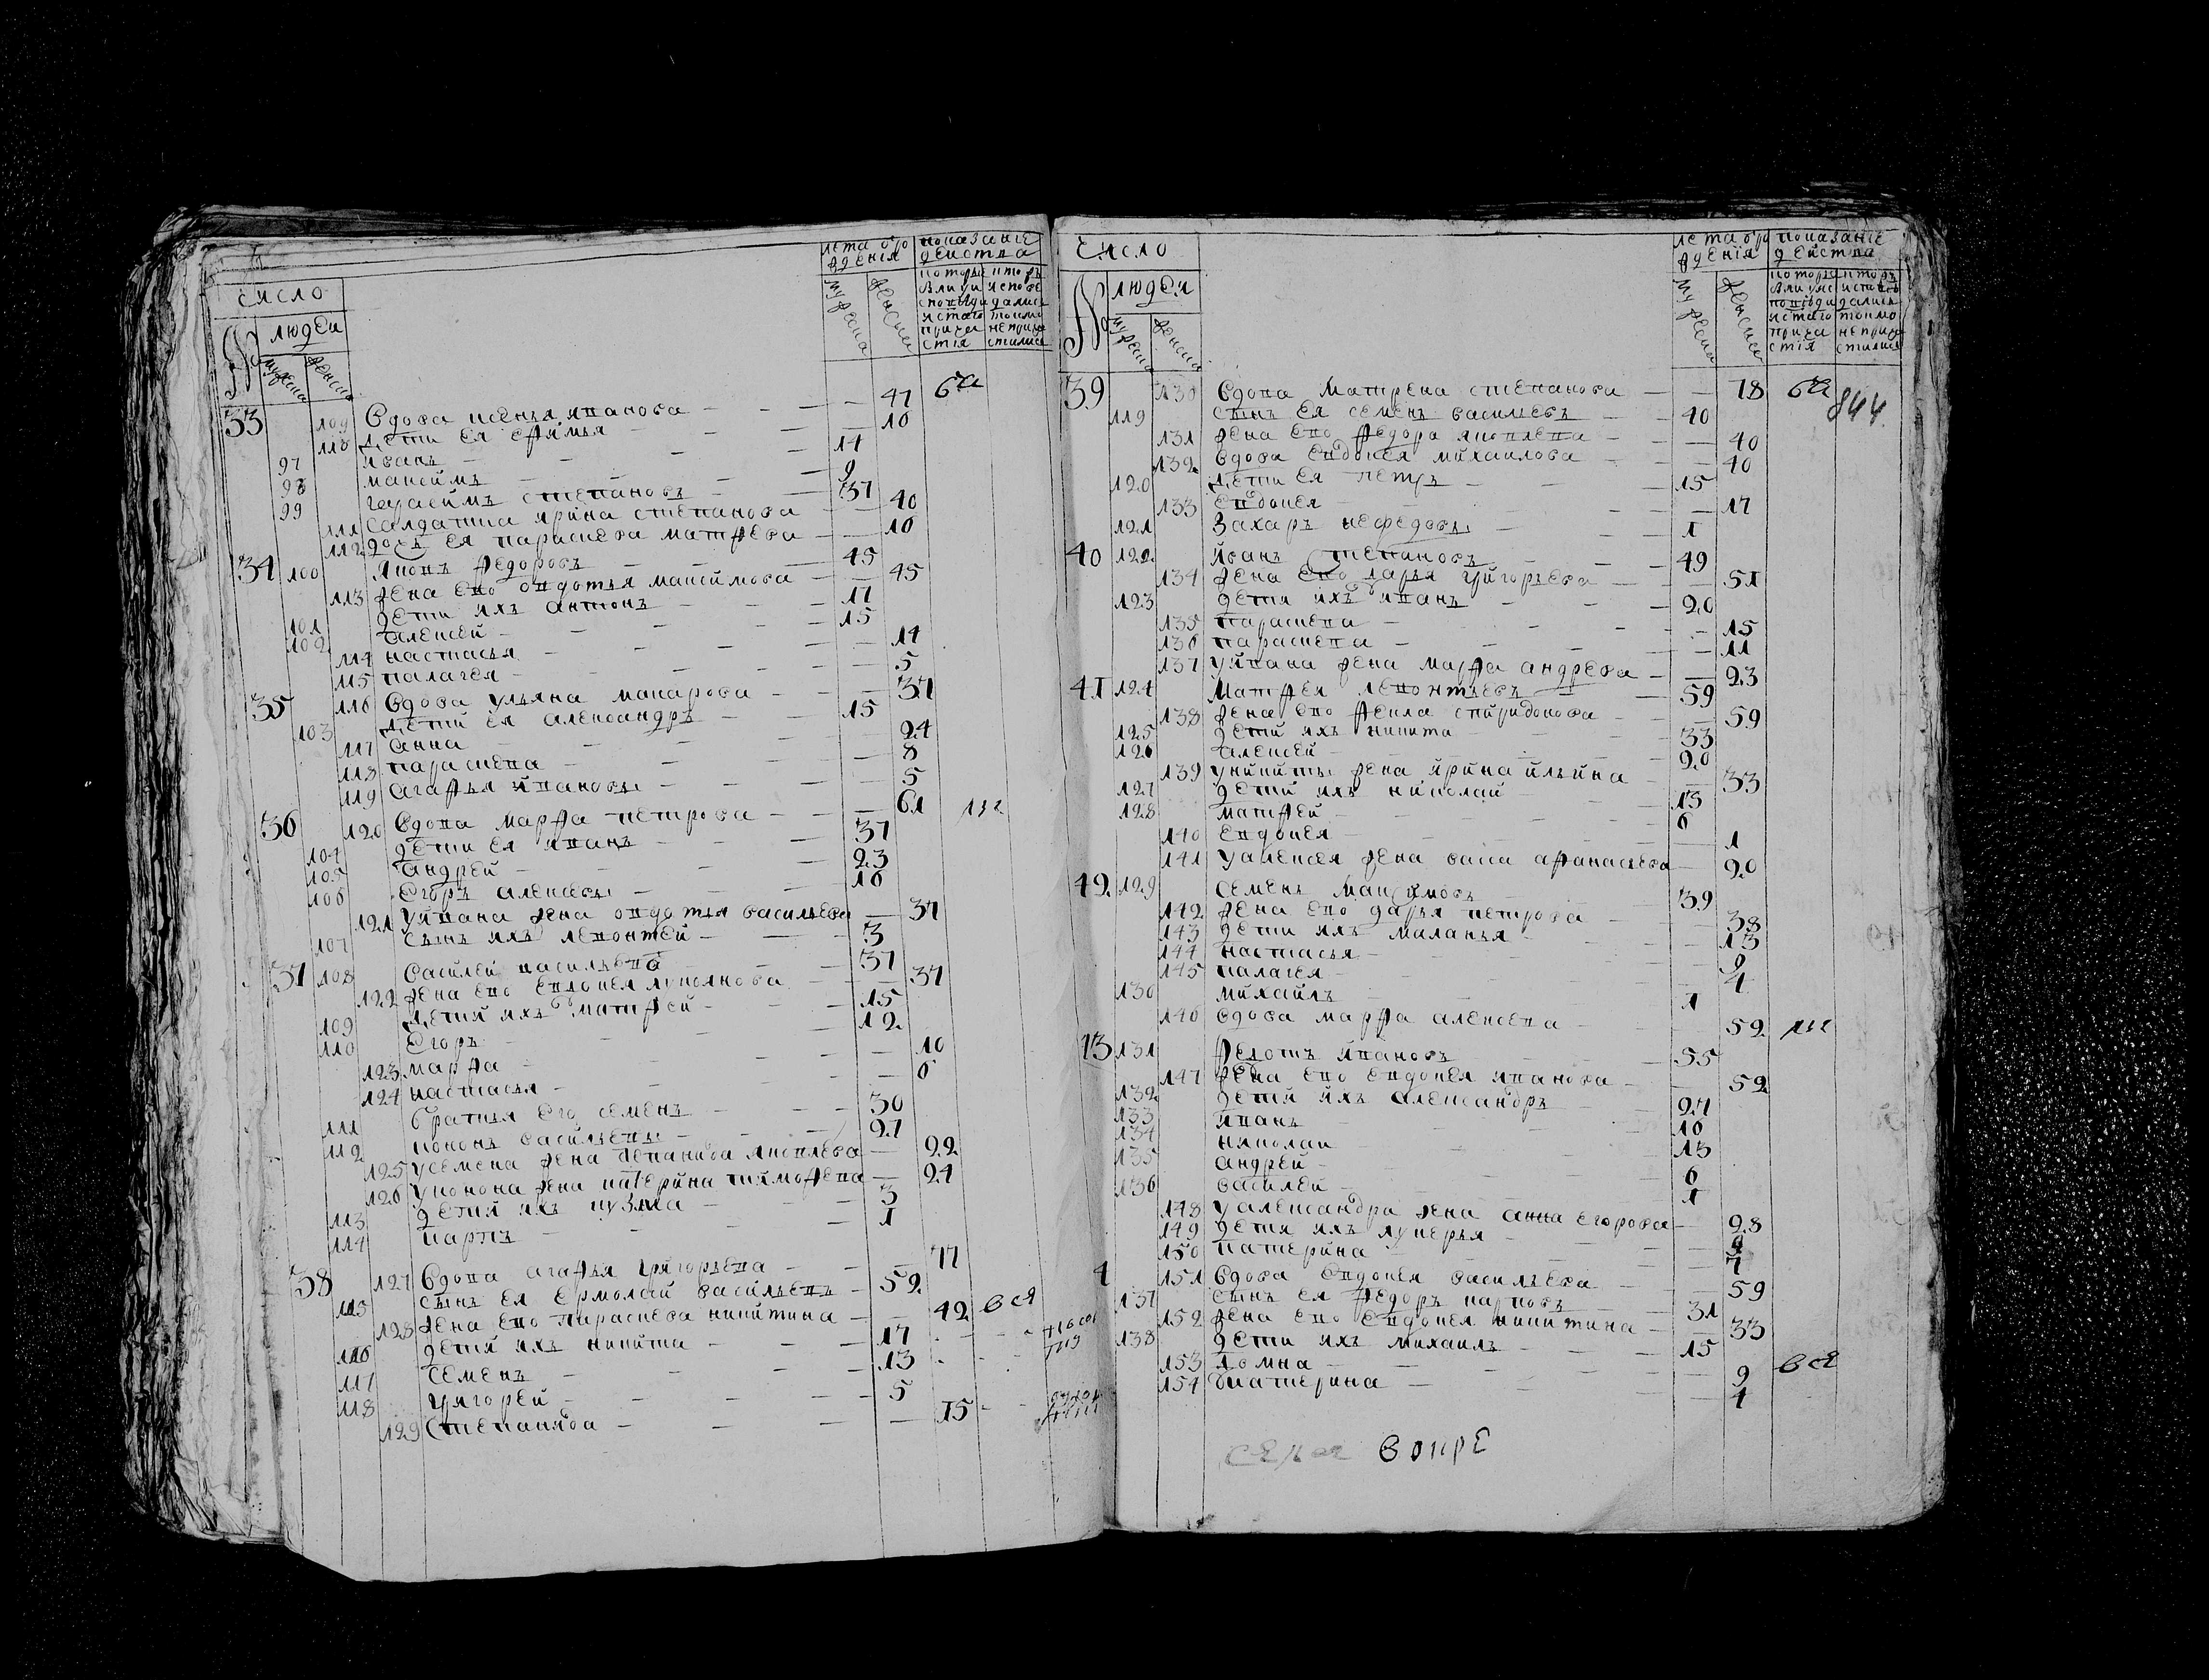 число
людеи
№ мужеска женска
лета от рождения
мужеска женска
показание действа
33 109 Вдова ксенья иванова — 47
110 Дети ея ефимья — 10
97 иванъ — 14
98 максимъ — 9
99 герасимъ степановъ — 37
111 Салдатка ирина степанова — 40
112 дочь ея параскева матфева — 10
34 100 Яковъ федоровъ — 45
113 жена ево овдотья максимова — 45
101 дети ихъ антонъ — 17
102 алексей — 15
114 настасья — 14
115 палагея — 5
35 116 Вдова ульяна макарова — 37
103 Дети ея александръ — 15
117 анна — 24
118 параскева — 8
119 агафья ивановы — 5
36 120 Вдова марфа петрова — 61
104 дети ея иванъ — 37
105 андрей — 23
106 Егоръ алексевы — 16
121 у ивана жена овдотья васильева — 37
107 сынъ ихъ левонтей — 3
37 108 василей васильевъ — 37
122 жена ево евдокея — 37
109 Дети ихъ матфей — 15
110 Егоръ — 12
123 марфа — 10
124 настасья — 6
111 братья его семенъ — 30
112 кононъ васильевы — 27
125 у семена жена степанида яковлева — 22
126 у конона жена катерина тимофева — 24
113 дети ихъ кузма — 3
114 карпъ — 1
38 127 Вдова агафья григорьева — 77
115 сынъ ея ермолай васильевъ — 52
128 жена ево параскева никитина — 42
116 дети ихъ никита — 17
117 семенъ — 13
118 григорей — 5
129 степанида — 15
число
людеи
№ мужеска женска
лета от рождения
мужеска женска
показание действа
844
39 130 Вдова матрена степанова — 78
119 сынъ ея семенъ васильевъ — 40
131 жена ево федора яковлева — 40
132 вдова евдокея михаилова — 40
120 Дети ея петръ — 15
133 евдокея — 17
121 Захаръ нефедовы — 1
40 122 иванъ степановъ — 49
134 жена ево дарья григорьева — 51
123 дети ихъ иванъ — 20
135 параскева — 15
136 параскева — 11
137 у ивана жена марфа андрева — 23
41 124 матфей левонтьевъ — 59
138 жена ево фекла спиридонова — 59
125 дети ихъ никита — 33
126 алексей — 20
139 у никиты жена ирина ильина — 33
127 дети ихъ николай — 13
128 матфей — 6
140 евдокея — 1
141 у алексея жена васса афанасьева — 20
42 129 семенъ максимовъ — 39
142 жена ево дарья петрова — 38
143 дети ихъ маланья — 13
144 настасья — 9
145 палагея — 4
130 михаилъ — 1
146 вдова марфа алексева — 52
43 131 федотъ ивановъ — 55
147 жена ево евдокея иванова — 52
132 дети ихъ александръ — 27
133 иванъ — 16
134 николаи — 13
135 андрей — 6
136 василей — 1
148 у александра жена анна егорова — 28
149 дети ихъ лукерья — 9
150 катерина — 7
151 вдова евдокея васильева — 59
137 сынъ ея федоръ карповъ — 31
152 жена ево евдокея никитина — 33
138 дети ихъ михаилъ — 15
153 домна — 9
154 катерина — 4